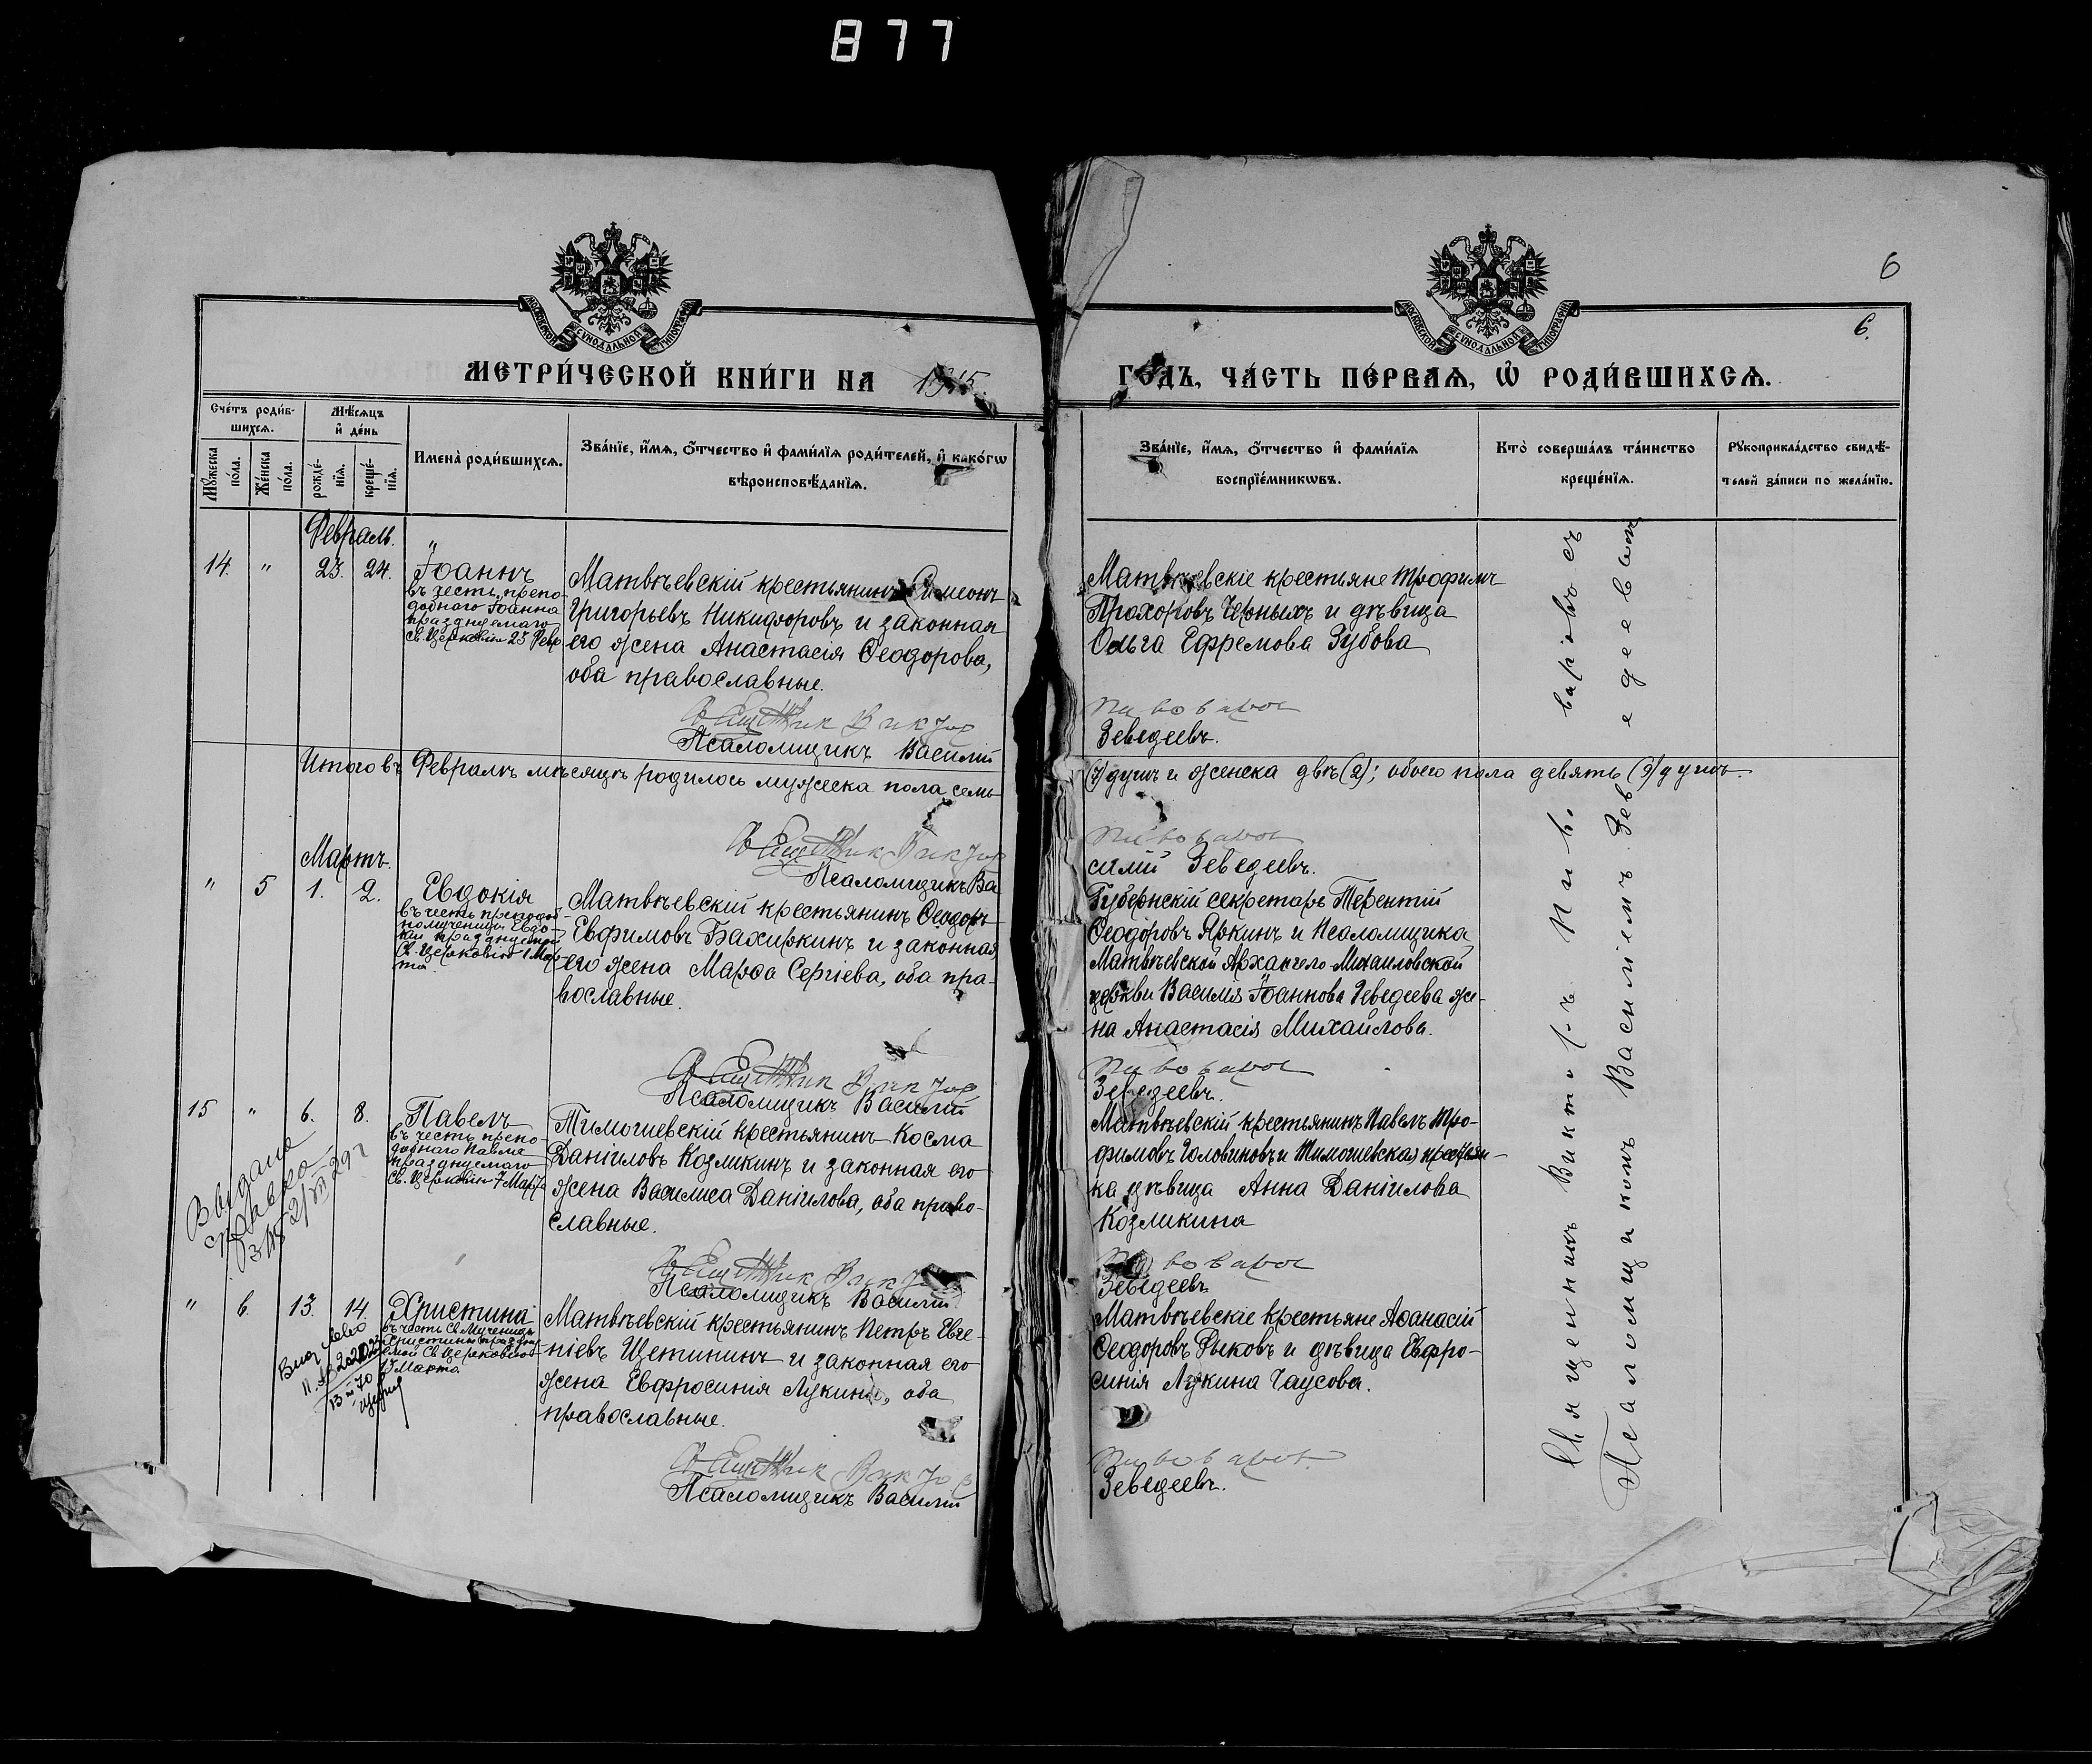 877
6
6.
МОСКОВСКОЙ СѴНОДАЛЬНОЙ ТИПОГРАФІИ
МОСКОВСКОЙ СѴНОДАЛЬНОЙ ТИПОГРАФІИ
МЕТРИ́ЧЕСКОЙ КНИ́ГИ НА 1915.
ГО́ДЪ, ЧА́СТЬ ПЕ́РВАѦ, Ѡ҆ РОДИ́ВШИХСѦ.
Сче́тъ роди́в-
шихсѧ.
Мѣ́сѧцъ
и҆ де́нь
Мꙋ́жеска
по́ла.
Же́нска
по́ла.
рожде́-
нїѧ.
креще́-
нїѧ.
Имена̀ роди́вшихсѧ.
Зва́нїе, и҆́мѧ, ѻ҆́тчество и҆ фами́лїѧ роди́телей, и҆ како́гѡ
вѣроисповѣ́данїѧ.
Зва́нїе, и҆́мѧ, ѻ҆́тчество и҆ фами́лїѧ
воспрїе́мникѡвъ.
Кто̀ соверша́лъ та́инство
креще́нїѧ.
Рꙋкоприкла́дство свидѣ́-
телей за́писи по жела́нїю.
Февраль.
14. " 23. 24. Іоаннъ
въ честь препо-
добнаго Іоанна
празднуемаго
Св. Церковію 23 Февр
Матвѣевскій крестьянинъ Симеонъ
Григорьевъ Никифоровъ и законная
его жена Анастасія Ѳеодорова,
оба православные.
Священник Виктор
Псаломщикъ Василій
Матвѣевскіе крестьяне Трофимъ
Прохоровъ Черныхъ и дѣвица
Ольга Ефремова Зубова
Пивоваров
Зеведеевъ.
Итого въ Февралѣ мѣсяцѣ родилось мужеска пола семь
(7) душъ и женска двѣ (2); обоего пола девять (9) душъ.
Священник Виктор
Псаломщикъ Ва
Пивоваров
силій Зеведеевъ.
Мартъ.
" 5 1. 2. Евдокія
въ честь преподоб-
номученицы Евдо-
кіи празднуемой
Св. Церковію 1 Мар-
та
Матвѣевскій крестьянинъ Ѳеодоръ
Евфимовъ Бахиркинъ и законная
его жена Марѳа Сергіева, оба пра-
вославные.
Священник Виктор
Псаломщикъ Василій
Губернскій секретарь Терентій
Ѳеодоровъ Яркинъ и Псаломщика
Матвѣевской Архангело-Михаиловской
церкви Василія Іоаннова Зеведеева же-
на Анастасія Михайлова.
Пивоваров
Зеведеевъ.
15 " 6. 8. Павелъ
въ честь препо-
добнаго Павла
празднуемаго
Св. Церковію 7 Марта
Выдана
справка
Тимошевскій крестьянинъ Косма
Даніиловъ Козликинъ и законная его
жена Василиса Даніилова, оба право-
славные.
Священник Виктор
Псаломщикъ Василій
Матвѣевскій крестьянинъ Павелъ Тро-
фимовъ Головиновъ и Тимошевская крестьян-
ка дѣвица Анна Даніилова
Козликина
Пивоваров
Зеведеевъ
" 6. 13. 14. Христина
въ честь Св. Мученицы
Христины празднуе-
мой Св. Церковію
13 Марта.
Матвѣевскій крестьянинъ Петръ Евге-
ніевъ Щетининъ и законная его
жена Евфросинія Лукина, оба
православные.
Священник Виктор
Псаломщикъ Василій
Матвѣевскіе крестьяне Аѳанасій
Ѳеодоровъ Быковъ и дѣвица Евфро-
синія Лукина Чаусова.
Пивоваров
Зеведеевъ.
Священникъ Викторъ Пивоваровъ съ
Псаломщикомъ Василіемъ Зеведеевымъ